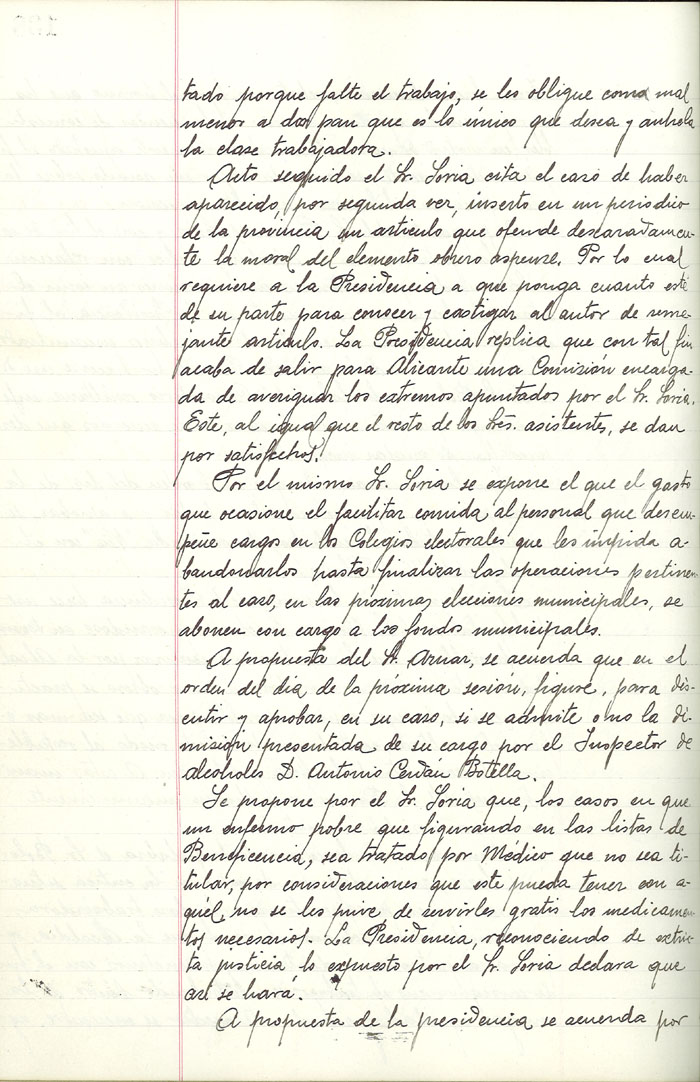 tado porque falte el trabajo, se les oblique como mal
menor a dar pan que es lo único que desea y anhela
la clase trabajadora.
Acto seguido el Sr. Soria cita el caso de haber
aparecido, por segunda vez, inserto en un periodico
de la provincia un articulo que ofende descaradamen-
te la moral del elemento obrero aspense. Por lo cual
requiere a la Presidencia a que ponga cuanto esté
de su parte para conocer y castigar al autor de seme-
jante articulo. La Presidencia replica que con tal fin
acaba de salir para Alicante una Comisión encarga-
da de averiguar los extremos apuntados por el Sr. Soria.
Este, al igual que el resto de los Sres. asistentes, se dan
por satisfechos.
Por el mismo Sr. Soria se expone el que el gasto
que ocasione el facilitar comida al personal que desem-
peñe cargos en los Colegios electorales que les impida a-
bandonarlos hasta finalizar las operaciones pertinen-
tes al caso, en las próximas elecciones municipales, se
abonen con cargo a los fondos municipales.
A propuesta del Sr. Aznar, se acuerda que en el
orden del dia de la próxima sesión, figure, para dis-
cutir y aprobar, en su caso, si se admite o no la di-
misión presentada de su cargo por el Inspector de
alcoholes D. Antonio Cerdán Botella.
Se propone por el Sr. Soria que, los casos en que
un enfermo pobre que figurando en las listas de
Beneficencia, sea tratado por Médico que no sea ti-
tular, por consideraciones que este pueda tener con a-
quél, no se les prive de servirles gratis los medicamen-
tos necesarios. La Presidencia, reconociendo de extric-
ta justicia lo expuesto por el Sr. Soria declara que
asi se hara.
A propuesta de la presidencia se acuerda por